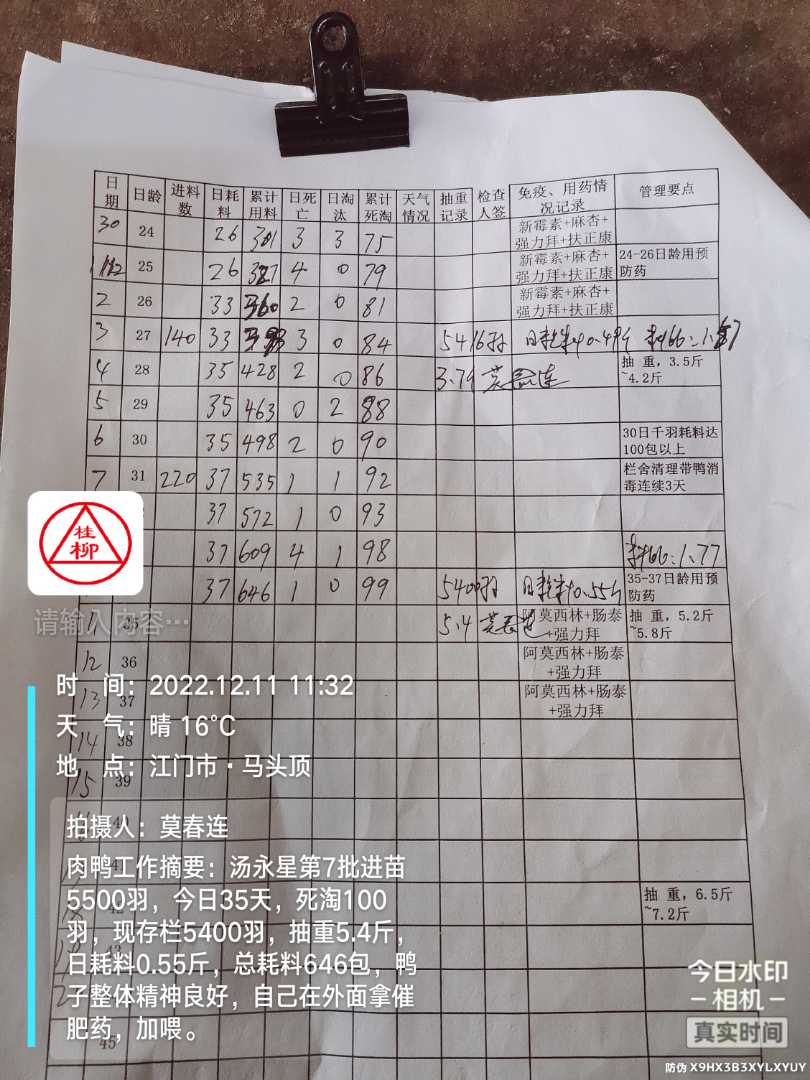 日期 日龄 进料数 日耗料 累计用料 日死亡 日淘汰 累计死淘 天气情况 抽重记录 检查人签 免疫、用药情况记录 管理要点
30 24 26 301 3 3 75 新霉素+麻杏+强力拜+扶正康
25 26 327 4 0 79 新霉素+麻杏+强力拜+扶正康 24-26日龄用预防药
2 26 33 360 2 0 81 新霉素+麻杏+强力拜+扶正康
3 27 140 33 3 0 84 5416羽 日耗料0.49斤
4 28 35 428 2 0 86 3.79 莫春连 抽 重，3.5斤~4.2斤
5 29 35 463 0 2 88
6 30 35 498 2 0 90 30日千羽耗料达100包以上
7 31 220 37 535 1 1 92 栏舍清理带鸭消毒连续3天
37 572 1 0 93
37 609 4 1 98 料肉比:1.77
37 646 1 0 99 5400羽 日耗料0.55斤 35-37日龄用预防药
11 35 5.4 莫春连 阿莫西林+肠泰+强力拜 抽 重，5.2斤~5.8斤
12 36 阿莫西林+肠泰+强力拜
13 37 阿莫西林+肠泰+强力拜
14 38
15 39
40
41
42 抽 重，6.5斤~7.2斤
43
45
桂柳
请输入内容…
时 间：2022.12.11 11:32
天 气：晴 16℃
地 点：江门市·马头顶
拍摄人：莫春连
肉鸭工作摘要：汤永星第7批进苗
5500羽，今日35天，死淘100
羽，现存栏5400羽，抽重5.4斤，
日耗料0.55斤，总耗料646包，鸭
子整体精神良好，自己在外面拿催
肥药，加喂。
今日水印
相机
真实时间
防伪 X9HX3B3XYLXYUY